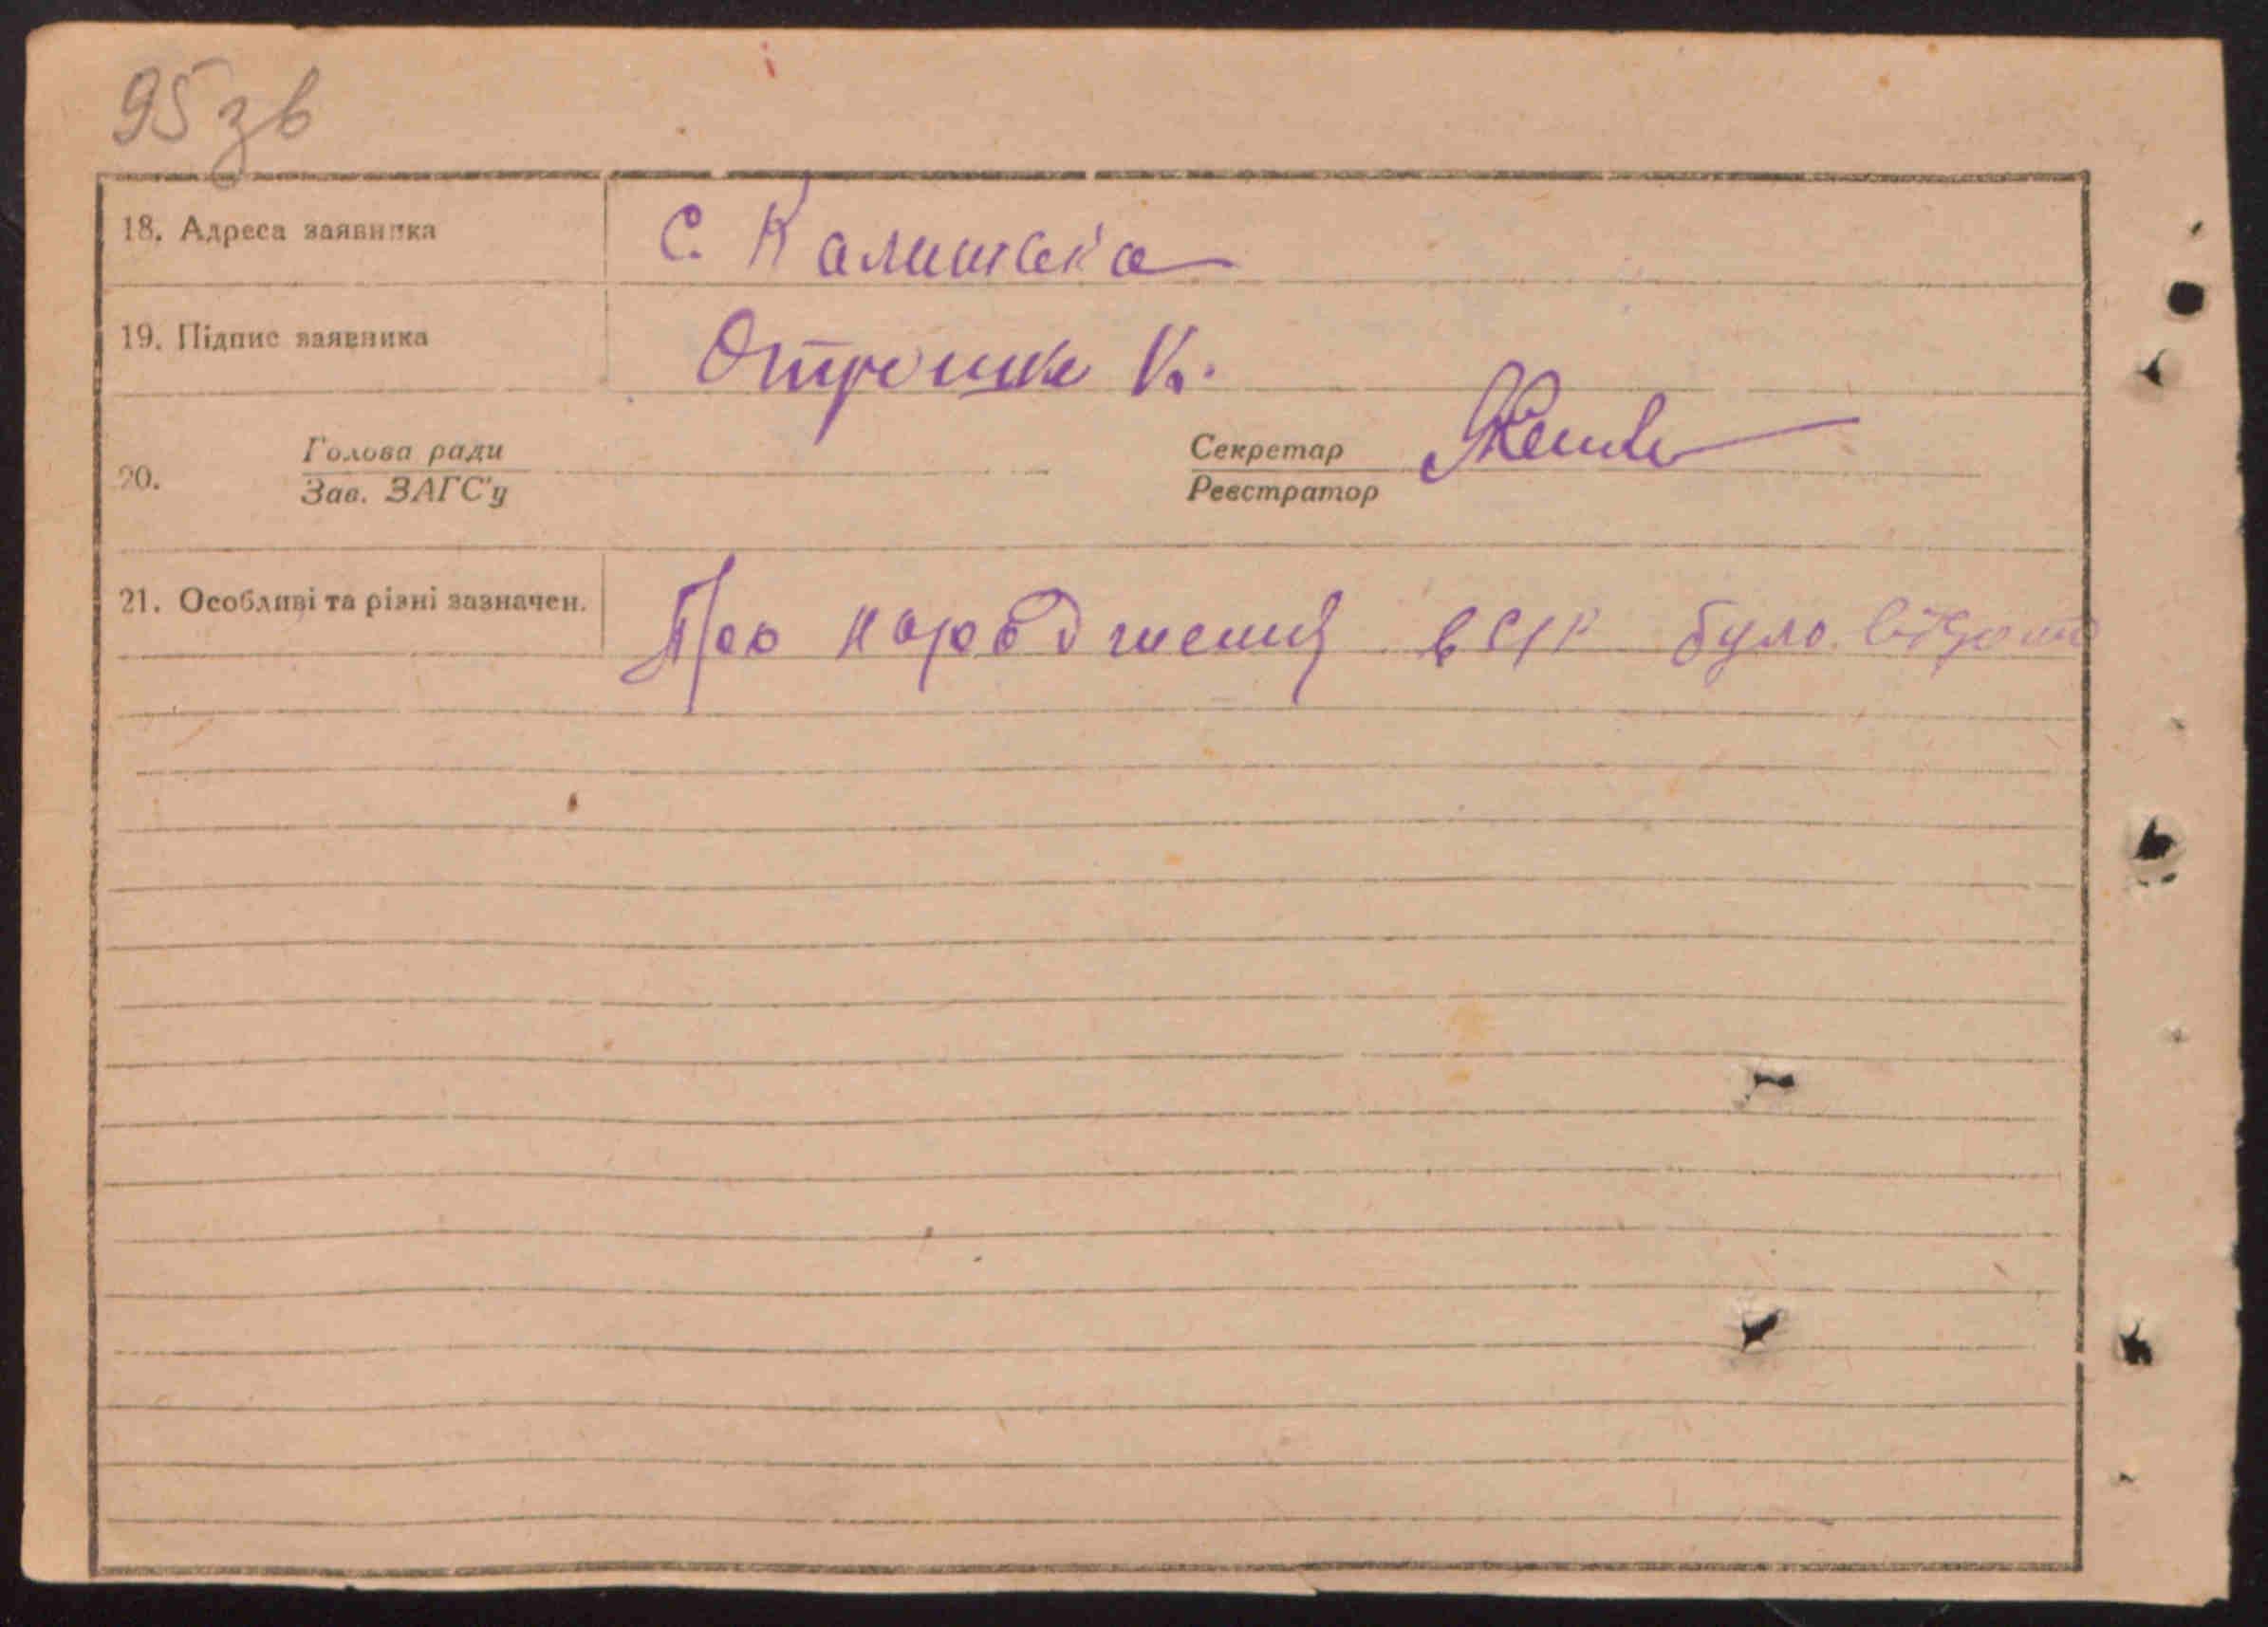 95 зв
18. Адреса заявника С. Калинівка
19. Підпис заявника Отрошко К.
20. Голова ради Секретар
Зав. ЗАГС'у Реєстратор
21. Особливі та різні зазначен. Про народження в с/р було відомо